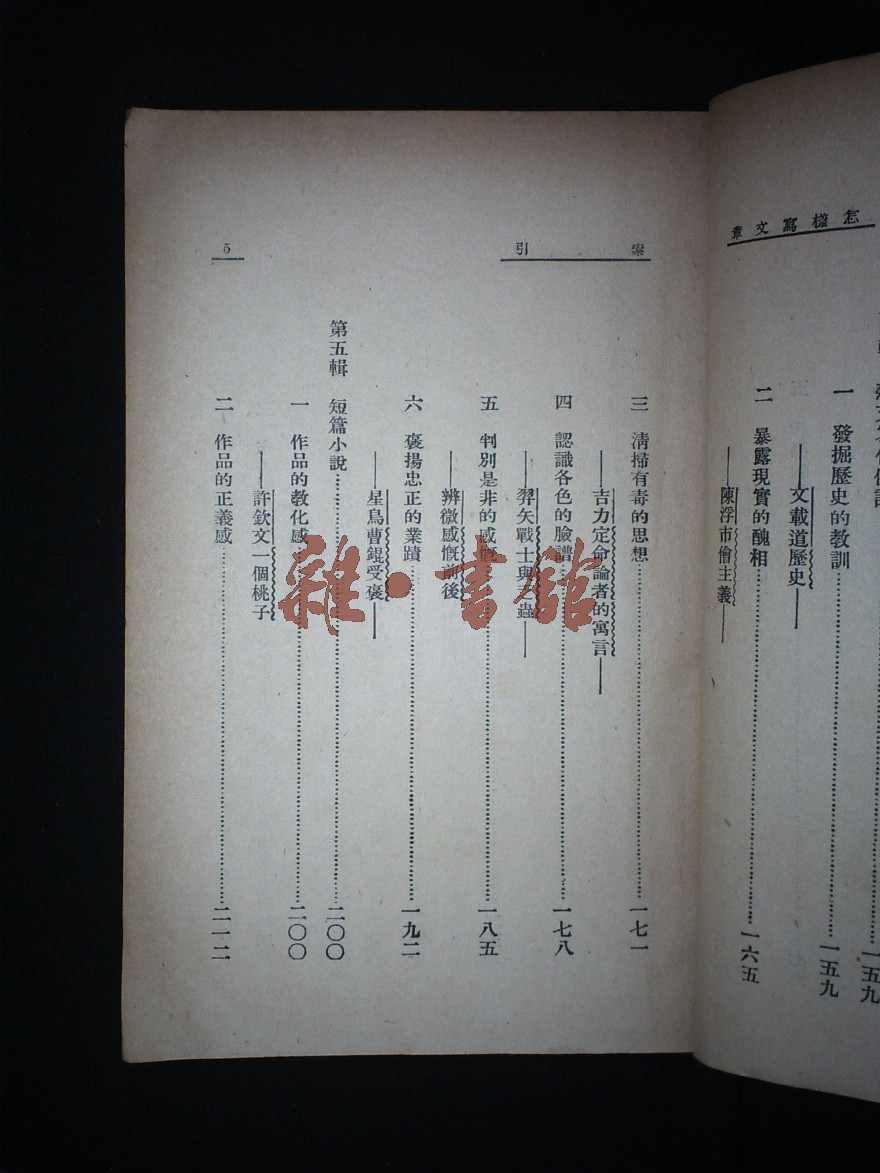 怎樣寫文章
一五九
一 發掘歷史的教訓……一五九
——文載道歷史——
二 暴露現實的醜相……一六五
——陳浮市儈主義——
索引
三 清掃有毒的思想……一七一
——吉力定命論者的寓言——
四 認識各色的臉譜……一七八
——羿矢戰士與 蟲——
五 判別是非的感慨……一八五
——辨微感慨前後
六 褒揚忠正的業蹟……一九二
——星鳥曹錕受褒——
第五輯 短篇小說……二〇〇
一 作品的敎化感……二〇〇
——許欽文一個桃子
二 作品的正義感……二一二
5
雜·書館